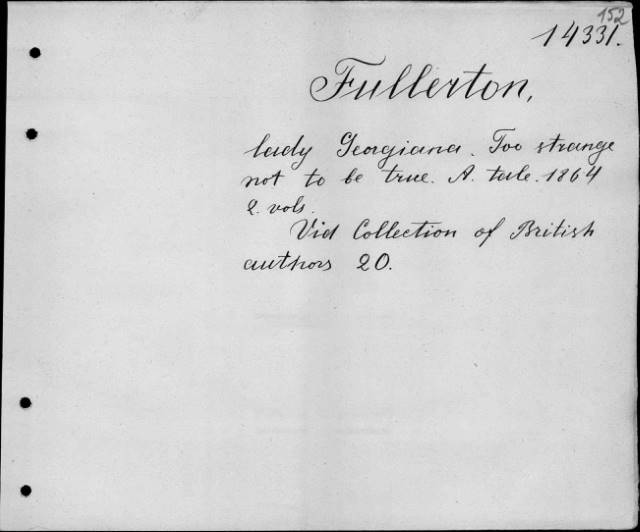 152
14331.
Fullerton,
lady Georgiana. Too strange
not to be true. A. tale. 1864
2. vols.
Vid Collection of British
authors 20.